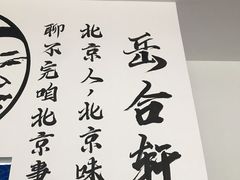 岳合轩
北京人，北京味
聊不完咱北京事